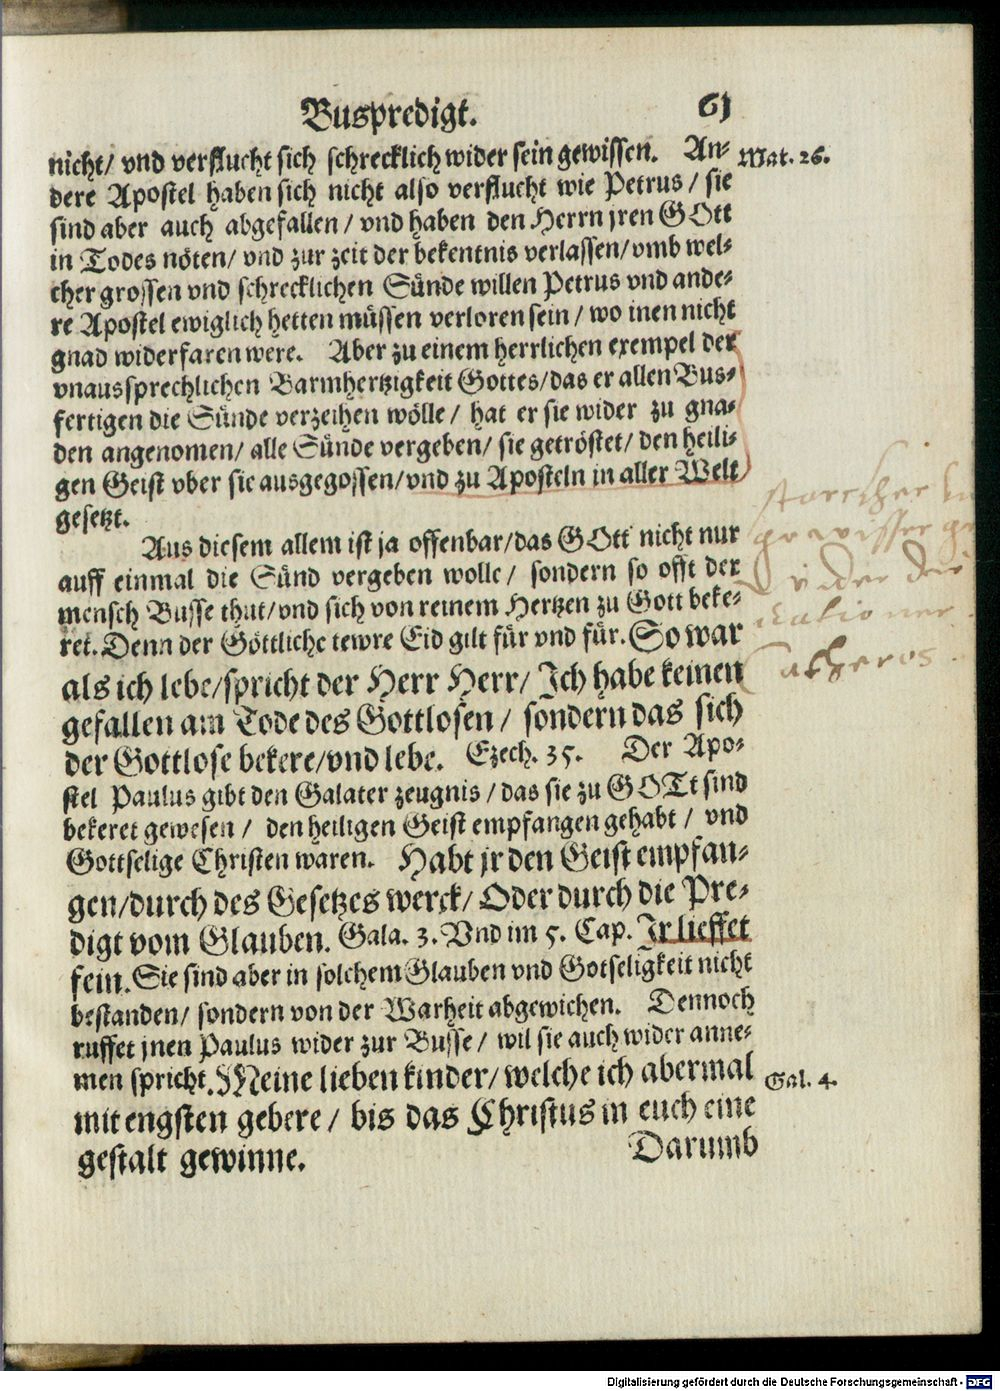 Buspredigt. 61
nicht/ vnd verflucht sich schrecklich wider sein gewissen. An- Mat. 26.
dere Apostel haben sich nicht also verflucht wie Petrus / sie
sind aber auch abgefallen / vnd haben den Herrn jren GOtt
in Todes nöten/ vnd zur zeit der bekentnis verlassen/ vmb wel-
cher grossen vnd schrecklichen Sünde willen Petrus vnd ande-
re Apostel ewiglich hetten müssen verloren sein / wo inen nicht
gnad widerfaren were. Aber zu einem herrlichen exempel der
vnaussprechlichen Barmhertzigkeit Gottes/ das er allen Bus-
fertigen die Sünde verzeihen wölle / hat er sie wider zu gna-
den angenomen/ alle Sünde vergeben/ sie getröstet/ den heili-
gen Geist vber sie ausgegossen/ vnd zu Aposteln in aller Welt
gesetzt.
Aus diesem allem ist ja offenbar/ das GOtt nicht nur
auff einmal die Sünd vergeben wolle/ sondern so offt der
mensch Busse thut/ vnd sich von reinem Hertzen zu Gott beke-
ret. Denn der Göttliche tewre Eid gilt für vnd für. So war
als ich lebe/ spricht der Herr Herr/ Ich habe keinen
gefallen am Tode des Gottlosen / sondern das sich
der Gottlose bekere/ vnd lebe. Ezech. 35. Der Apo-
stel Paulus gibt den Galater zeugnis / das sie zu GOTt sind
bekeret gewesen / den heiligen Geist empfangen gehabt / vnd
Gottselige Christen waren. Habt jr den Geist empfan-
gen/ durch des Gesetzes werck/ Oder durch die Pre-
digt vom Glauben. Gala. 3. Vnd im 5. Cap. Ir lieffet
fein. Sie sind aber in solchem Glauben vnd Gotseligkeit nicht
bestanden/ sondern von der Warheit abgewichen. Dennoch
ruffet jnen Paulus wider zur Busse / wil sie auch wider anne-
men spricht. Meine lieben kinder/ welche ich abermal Gal. 4.
mit engsten gebere / bis das Christus in euch eine
gestalt gewinne. Darumb
Digitalisierung gefördert durch die Deutsche Forschungsgemeinschaft - DFG